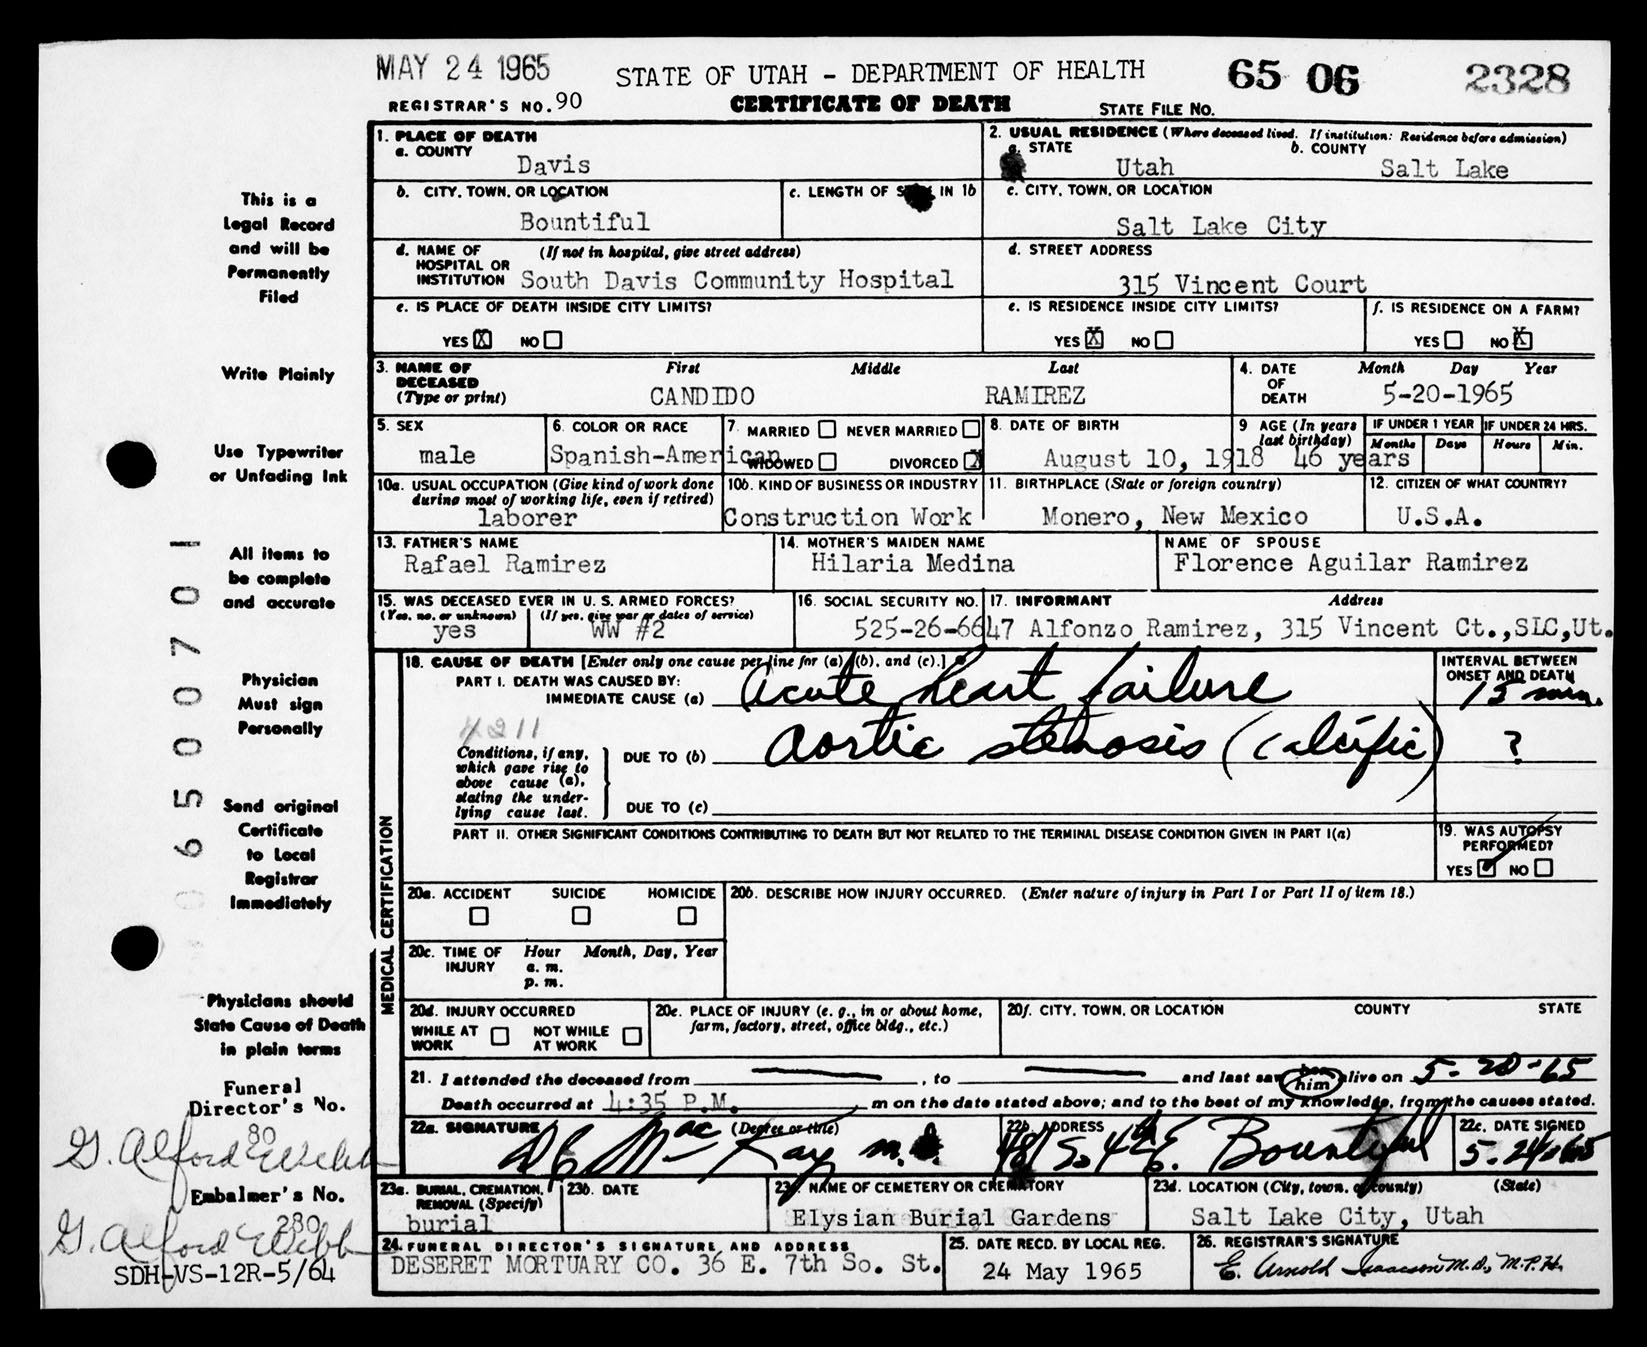 MAY 24 1965
STATE OF UTAH - DEPARTMENT OF HEALTH
65 06 2328
REGISTRAR'S NO. 90
CERTIFICATE OF DEATH
STATE FILE NO.
1. PLACE OF DEATH
a. COUNTY
Davis
2. USUAL RESIDENCE (Where deceased lived. If institution: Residence before admission)
a. STATE
Utah
b. COUNTY
Salt Lake
b. CITY, TOWN, OR LOCATION
Bountiful
c. LENGTH OF IN 1b
c. CITY, TOWN, OR LOCATION
Salt Lake City
d. NAME OF HOSPITAL OR INSTITUTION
(If not in hospital, give street address)
South Davis Community Hospital
d. STREET ADDRESS
315 Vincent Court
e. IS PLACE OF DEATH INSIDE CITY LIMITS?
YES X NO
e. IS RESIDENCE INSIDE CITY LIMITS?
YES X NO
f. IS RESIDENCE ON A FARM?
YES NO X
3. NAME OF DECEASED (Type or print)
First Middle Last
CANDIDO RAMIREZ
4. DATE OF DEATH
Month Day Year
5-20-1965
5. SEX
male
6. COLOR OR RACE
Spanish-American
7. MARRIED NEVER MARRIED
WIDOWED DIVORCED X
8. DATE OF BIRTH
August 10, 1918
9 AGE (In years last birthday)
46 years
IF UNDER 1 YEAR
Months Days
IF UNDER 24 HRS.
Hours Min.
10a. USUAL OCCUPATION (Give kind of work done during most of working life, even if retired)
laborer
10b. KIND OF BUSINESS OR INDUSTRY
Construction Work
11. BIRTHPLACE (State or foreign country)
Monero, New Mexico
12. CITIZEN OF WHAT COUNTRY?
U.S.A.
13. FATHER'S NAME
Rafael Ramirez
14. MOTHER'S MAIDEN NAME
Hilaria Medina
NAME OF SPOUSE
Florence Aguilar Ramirez
15. WAS DECEASED EVER IN U. S. ARMED FORCES?
(Yes, no, or unknown) (If yes, give war or dates of service)
yes WW #2
16. SOCIAL SECURITY NO.
525-26-6647
17. INFORMANT Address
Alfonzo Ramirez, 315 Vincent Ct.,SLC,Ut.
MEDICAL CERTIFICATION
18. CAUSE OF DEATH [Enter only one cause per line for (a), (b), and (c).]
PART I. DEATH WAS CAUSED BY:
IMMEDIATE CAUSE (a) Acute heart failure
INTERVAL BETWEEN ONSET AND DEATH
15 min.
4211
Conditions, if any, which gave rise to above cause (a), stating the under-lying cause last.
DUE TO (b) Aortic stenosis (calcific) ?
DUE TO (c)
PART II. OTHER SIGNIFICANT CONDITIONS CONTRIBUTING TO DEATH BUT NOT RELATED TO THE TERMINAL DISEASE CONDITION GIVEN IN PART I(a)
19. WAS AUTOPSY PERFORMED?
YES ✓ NO
20a. ACCIDENT SUICIDE HOMICIDE
20b. DESCRIBE HOW INJURY OCCURRED. (Enter nature of injury in Part I or Part II of item 18.)
20c. TIME OF INJURY
Hour Month, Day, Year
a. m.
p. m.
20d. INJURY OCCURRED
WHILE AT WORK NOT WHILE AT WORK
20e. PLACE OF INJURY (e. g., in or about home, farm, factory, street, office bldg., etc.)
20f. CITY, TOWN, OR LOCATION COUNTY STATE
21. I attended the deceased from , to and last saw him alive on 5-20-65
Death occurred at 4:35 P.M. m on the date stated above; and to the best of my knowledge, from the causes stated.
22a. SIGNATURE (Degree or title)
D C MacKay M.D.
22b. ADDRESS
481 So. 4th E. Bountiful
22c. DATE SIGNED
5-24-65
23a. BURIAL, CREMATION, REMOVAL (Specify)
burial
23b. DATE
23c. NAME OF CEMETERY OR CREMATORY
Elysian Burial Gardens
23d. LOCATION (City, town, or county) (State)
Salt Lake City, Utah
24. FUNERAL DIRECTOR'S SIGNATURE AND ADDRESS
DESERET MORTUARY CO. 36 E. 7th So. St.
25. DATE RECD. BY LOCAL REG.
24 May 1965
26. REGISTRAR'S SIGNATURE
E. Arnold Isaacson M.D., M.P.H.
This is a
Legal Record
and will be
Permanently
Filed
Write Plainly
Use Typewriter
or Unfading Ink
All items to
be complete
and accurate
Physician
Must sign
Personally
Send original
Certificate
to Local
Registrar
Immediately
Physicians should
State Cause of Death
in plain terms
Funeral
Director's No.
80
G. Alford Webb
Embalmer's No.
280
G. Alford Webb
SDH-VS-12R-5/64
06500701